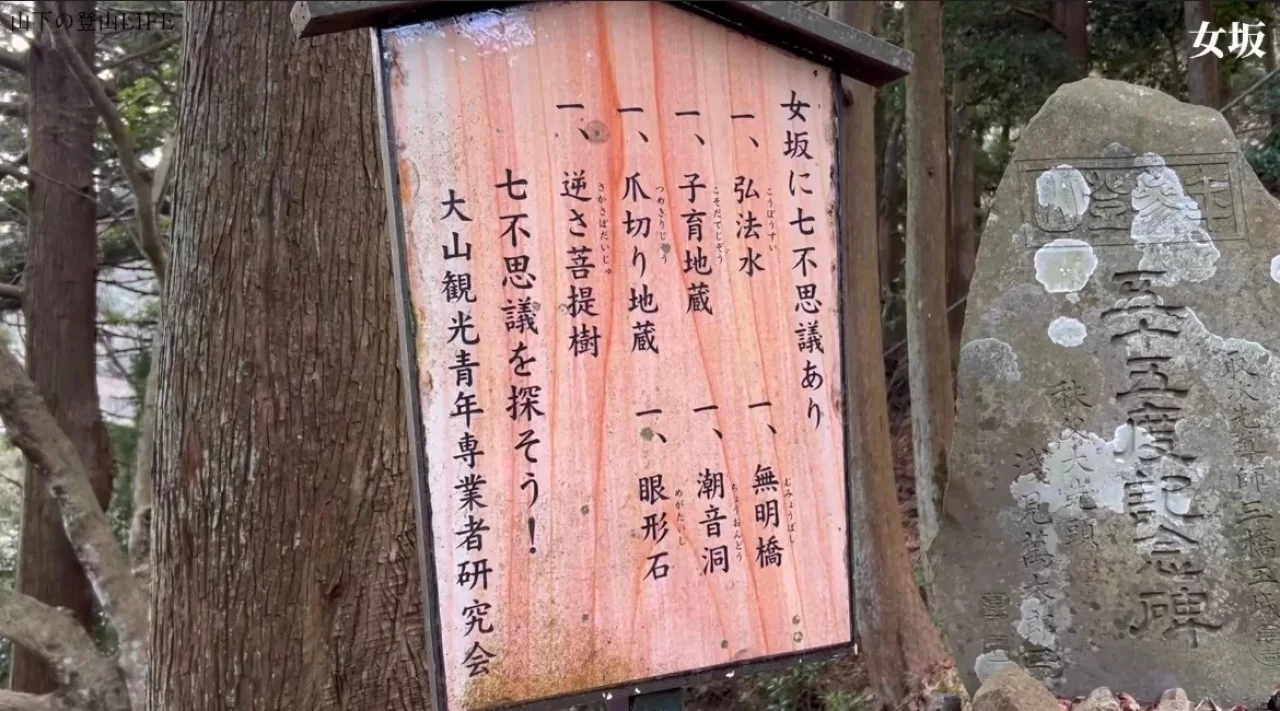 山下の登山LIFE
女坂
女坂に七不思議あり
一、弘法水
こうぼうすい
一、無明橋
むみょうばし
一、子育地蔵
こそだてじぞう
一、潮音洞
ちょうおんどう
一、爪切り地蔵
つめきりじぞう
一、眼形石
めがたいし
一、逆さ菩提樹
さかさぼだいじゅ
七不思議を探そう！
大山観光青年専業者研究会
五十五度記念碑
秩父大先頭
浅見萬